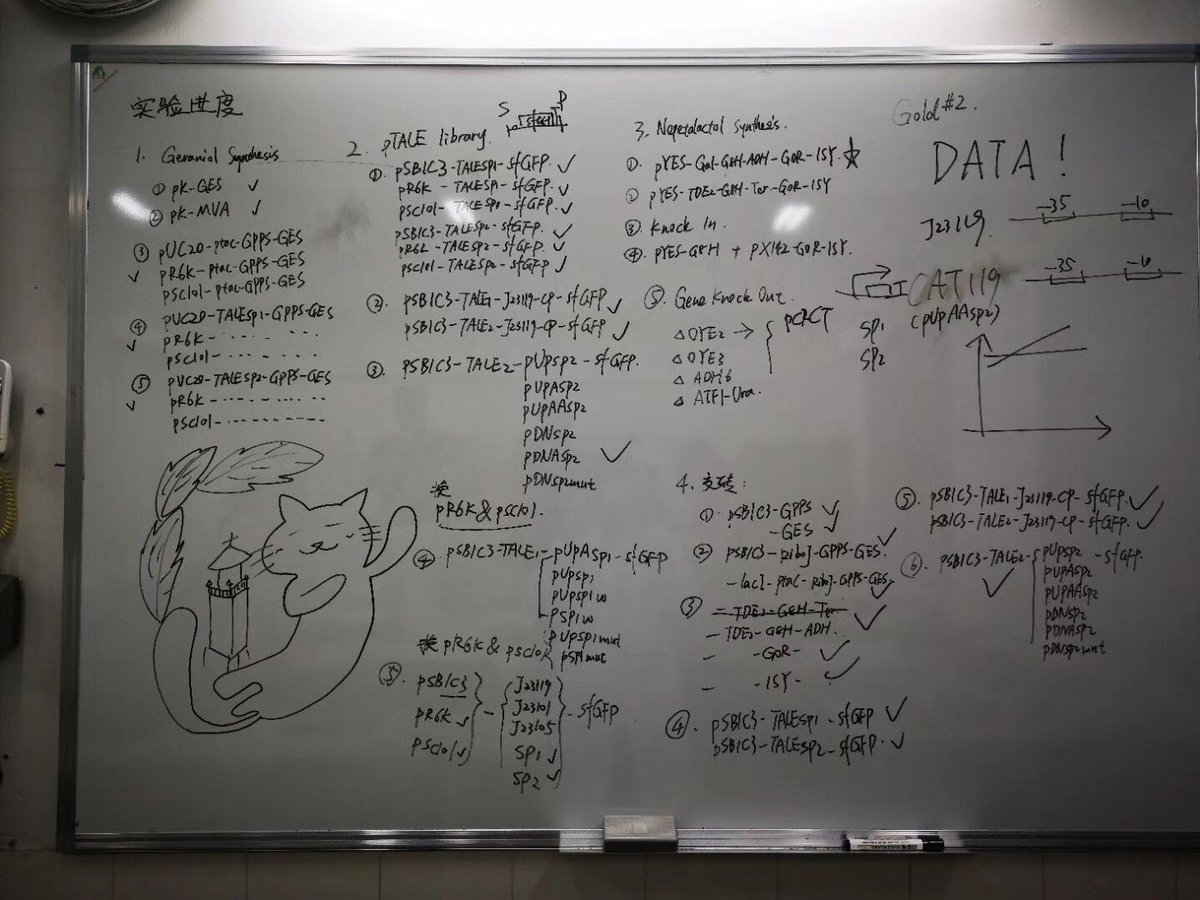 实验进度
1. Geranial Synthesis
① pK-GES ✓
② pK-MVA ✓
③ pUC20-ptac-GPPS-GES
✓ pR6K-ptac-GPPS-GES
pSC101-ptac-GPPS-GES
④ pUC20-TALEsp1-GPPS-GES
✓ pR6K-
pSC101-
⑤ pUC20-TALEsp2-GPPS-GES
✓ pR6K-
pSC101-
2. pTALE library.
S P
① pSB1C3-TALEsp1-sfGFP ✓
pR6K-TALEsp1-sfGFP ✓
pSC101-TALEsp1-sfGFP ✓
pSB1C3-TALEsp2-sfGFP ✓
pR6K-TALEsp2-sfGFP ✓
pSC101-TALEsp2-sfGFP ✓
② pSB1C3-TALE1-J23119-CP-sfGFP ✓
pSB1C3-TALE2-J23119-CP-sfGFP ✓
③ pSB1C3-TALE2-pUPsp2-sfGFP.
pUPAsp2
pUPAAsp2
pDNsp2
pDNAsp2 ✓
pDNsp2mut
换
pR6K & pSC101.
④ pSB1C3-TALE1-pUPAsp1-sfGFP
pUpsp1
pUpsp1w
pSP1w
pUpsp1mut
pSP1mut
换 pR6K & pSC101
⑤. pSB1C3
pR6K ✓
pSC101 ✓
J23119
J23101
J23105
SP1 ✓
SP2 ✓
-sfGFP
3. Nepetalactol Synthesis.
①. pYES-Gal-G8H-ADH-GOR-ISY. ★
② pYES-TDE2-G8H-Ter-GOR-ISY
③ Knock In.
④ pYES-G8H + PX142-GOR-ISY.
⑤ Gene Knock Out.
△ OYE2 →
△ OYE3
△ ADH6
△ ATF1-Ura.
pCRCT
SP1
SP2
Gold #2.
DATA!
J23119 -35 -10
CAT119 -35 -10
(pUpAAsp2)
① pSB1C3-GPPS ✓
-GES ✓
② pSB1C3-RiboJ-GPPS-GES. ✓
-lacI-ptac-RiboJ-GPPS-GES ✓
③ - TDE2-G8H-Ter
- TDE2-G8H-ADH. ✓
- -GOR- ✓
- -ISY- ✓
④ pSB1C3-TALEsp1-sfGFP ✓
pSB1C3-TALEsp2-sfGFP. ✓
⑤ pSB1C3-TALE1-J23119-CP-sfGFP. ✓
pSB1C3-TALE2-J23119-CP-sfGFP. ✓
⑥ pSB1C3-TALE2- pUPsp2 -sfGFP.
✓ pUPAsp2
pUPAAsp2
pDNsp2
pDNAsp2
pDNsp2mut